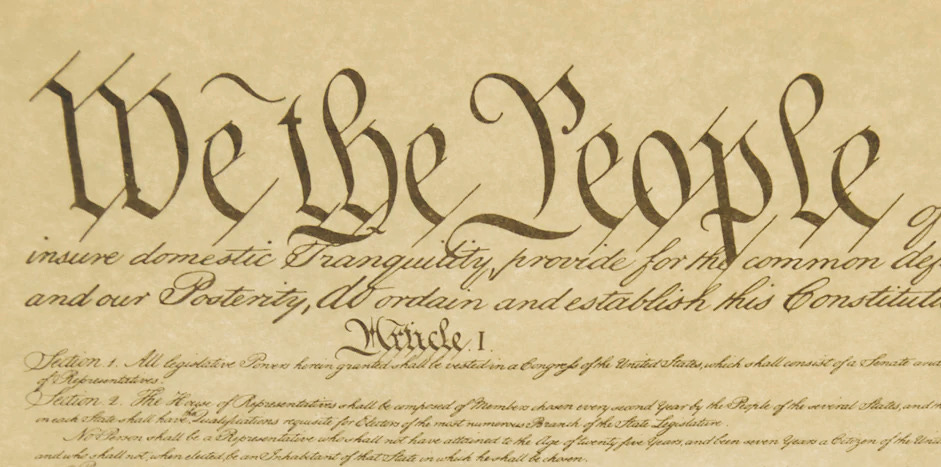 We the People of
insure domestic Tranquility, provide for the common def
and our Posterity, do ordain and establish this Constituti
Article. I.
Section 1. All legislative Powers herein granted shall be vested in a Congress of the United States, which shall consist of a Senate and
of Representatives.
Section 2. The House of Representatives shall be composed of Members chosen every second Year by the People of the several States, and
in each State shall have the Qualifications requisite for Electors of the most numerous Branch of the State Legislature.
No Person shall be a Representative who shall not have attained to the Age of twenty five Years, and been seven Years a Citizen of the Unit
and who shall not, when elected, be an Inhabitant of that State in which he shall be chosen.